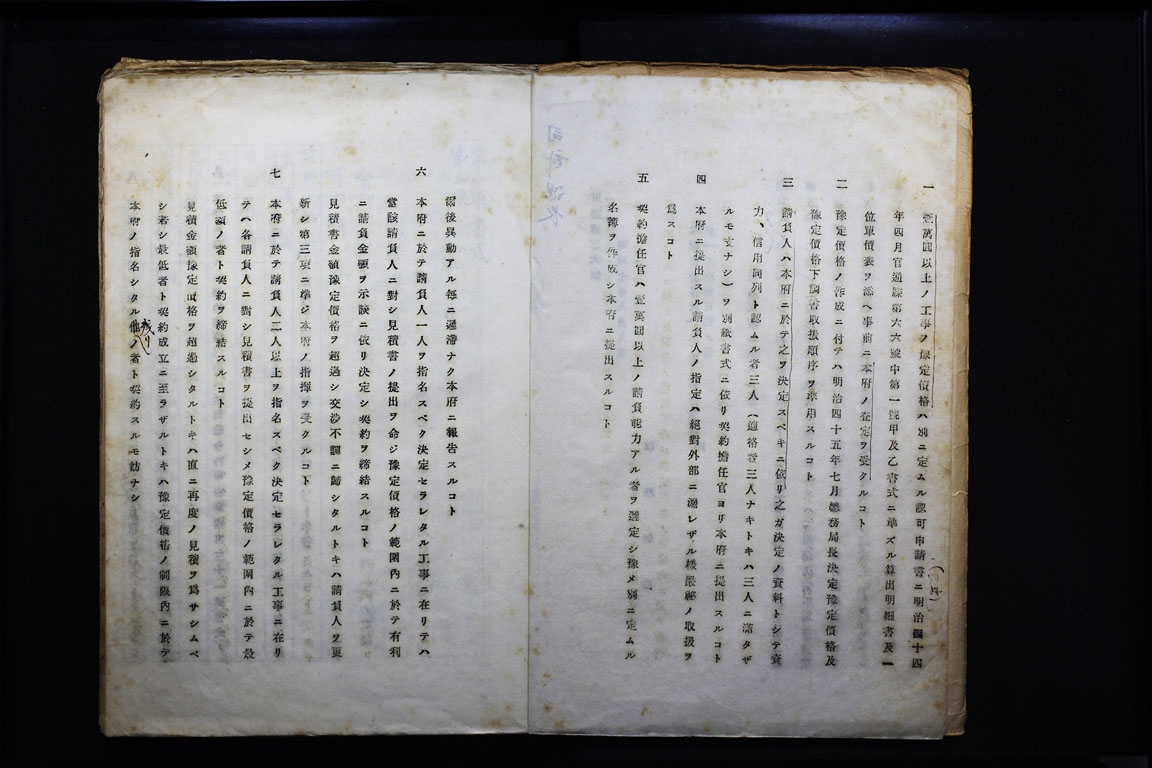 一 壹萬圓以上ノ工事ノ豫定價格ハ別ニ定ムル認可申請書ニ明治四十四
年四月官通牒第六六號中第一號甲及乙書式ニ準ズル算出明細書及一
位單價表ヲ添ヘ事前ニ本府ノ査定ヲ受クルコト
二 豫定價格ノ作成ニ付テハ明治四十五年七月總務局長決定豫定價格及
豫定價格下調書取扱順序ヲ準用スルコト
三 請負人ハ本府ニ於テ之ヲ決定スベキニ依リ之ガ決定ノ資料トシテ資
力、信用同列ト認ムル者三人(適格者三人ナキトキハ三人ニ滿タザ
ルモ丈ナシ)ヲ別紙書式ニ依リ契約擔任官ヨリ本府ニ提出スルコト
四 本府ニ提出スル請負人ノ指定ハ絕對外部ニ漏レザル樣嚴祕ノ取扱ヲ
爲スコト
五 契約擔任官ハ壹萬圓以上ノ請負能力アル者ヲ選定シ豫メ別ニ定ムル
名簿ヲ作成シ本府ニ提出スルコト
爾後異動アル每ニ遲滯ナク本府ニ報告スルコト
六 本府ニ於テ請負人一人ヲ指名スベク決定セラレタル工事ニ在リテハ
當該請負人ニ對シ見積書ノ提出ヲ命ジ豫定價格ノ範圍內ニ於テ有利
ニ請負金額ヲ示談ニ依リ決定シ契約ヲ締結スルコト
見積書金額豫定價格ヲ超過シ交涉不調ニ歸シタルトキハ請負人ヲ更
新シ第三項ニ準ジ本府ノ指揮ヲ受クルコト
七 本府ニ於テ請負人二人以上ヲ指名スベク決定セラレタル工事ニ在リ
テハ各請負人ニ對シ見積書ヲ提出セシメ豫定價格ノ範圍內ニ於テ最
低額ノ者ト契約ヲ締結スルコト
見積金額豫定價格ヲ超過シタルトキハ直ニ再度ノ見積ヲ爲サシムベ
シ若シ最低者ト契約成立ニ至ラザルトキハ豫定價格ノ制限內ニ於テ
本府ノ指名シタル他ノ者ト契約スルモ妨ナシ